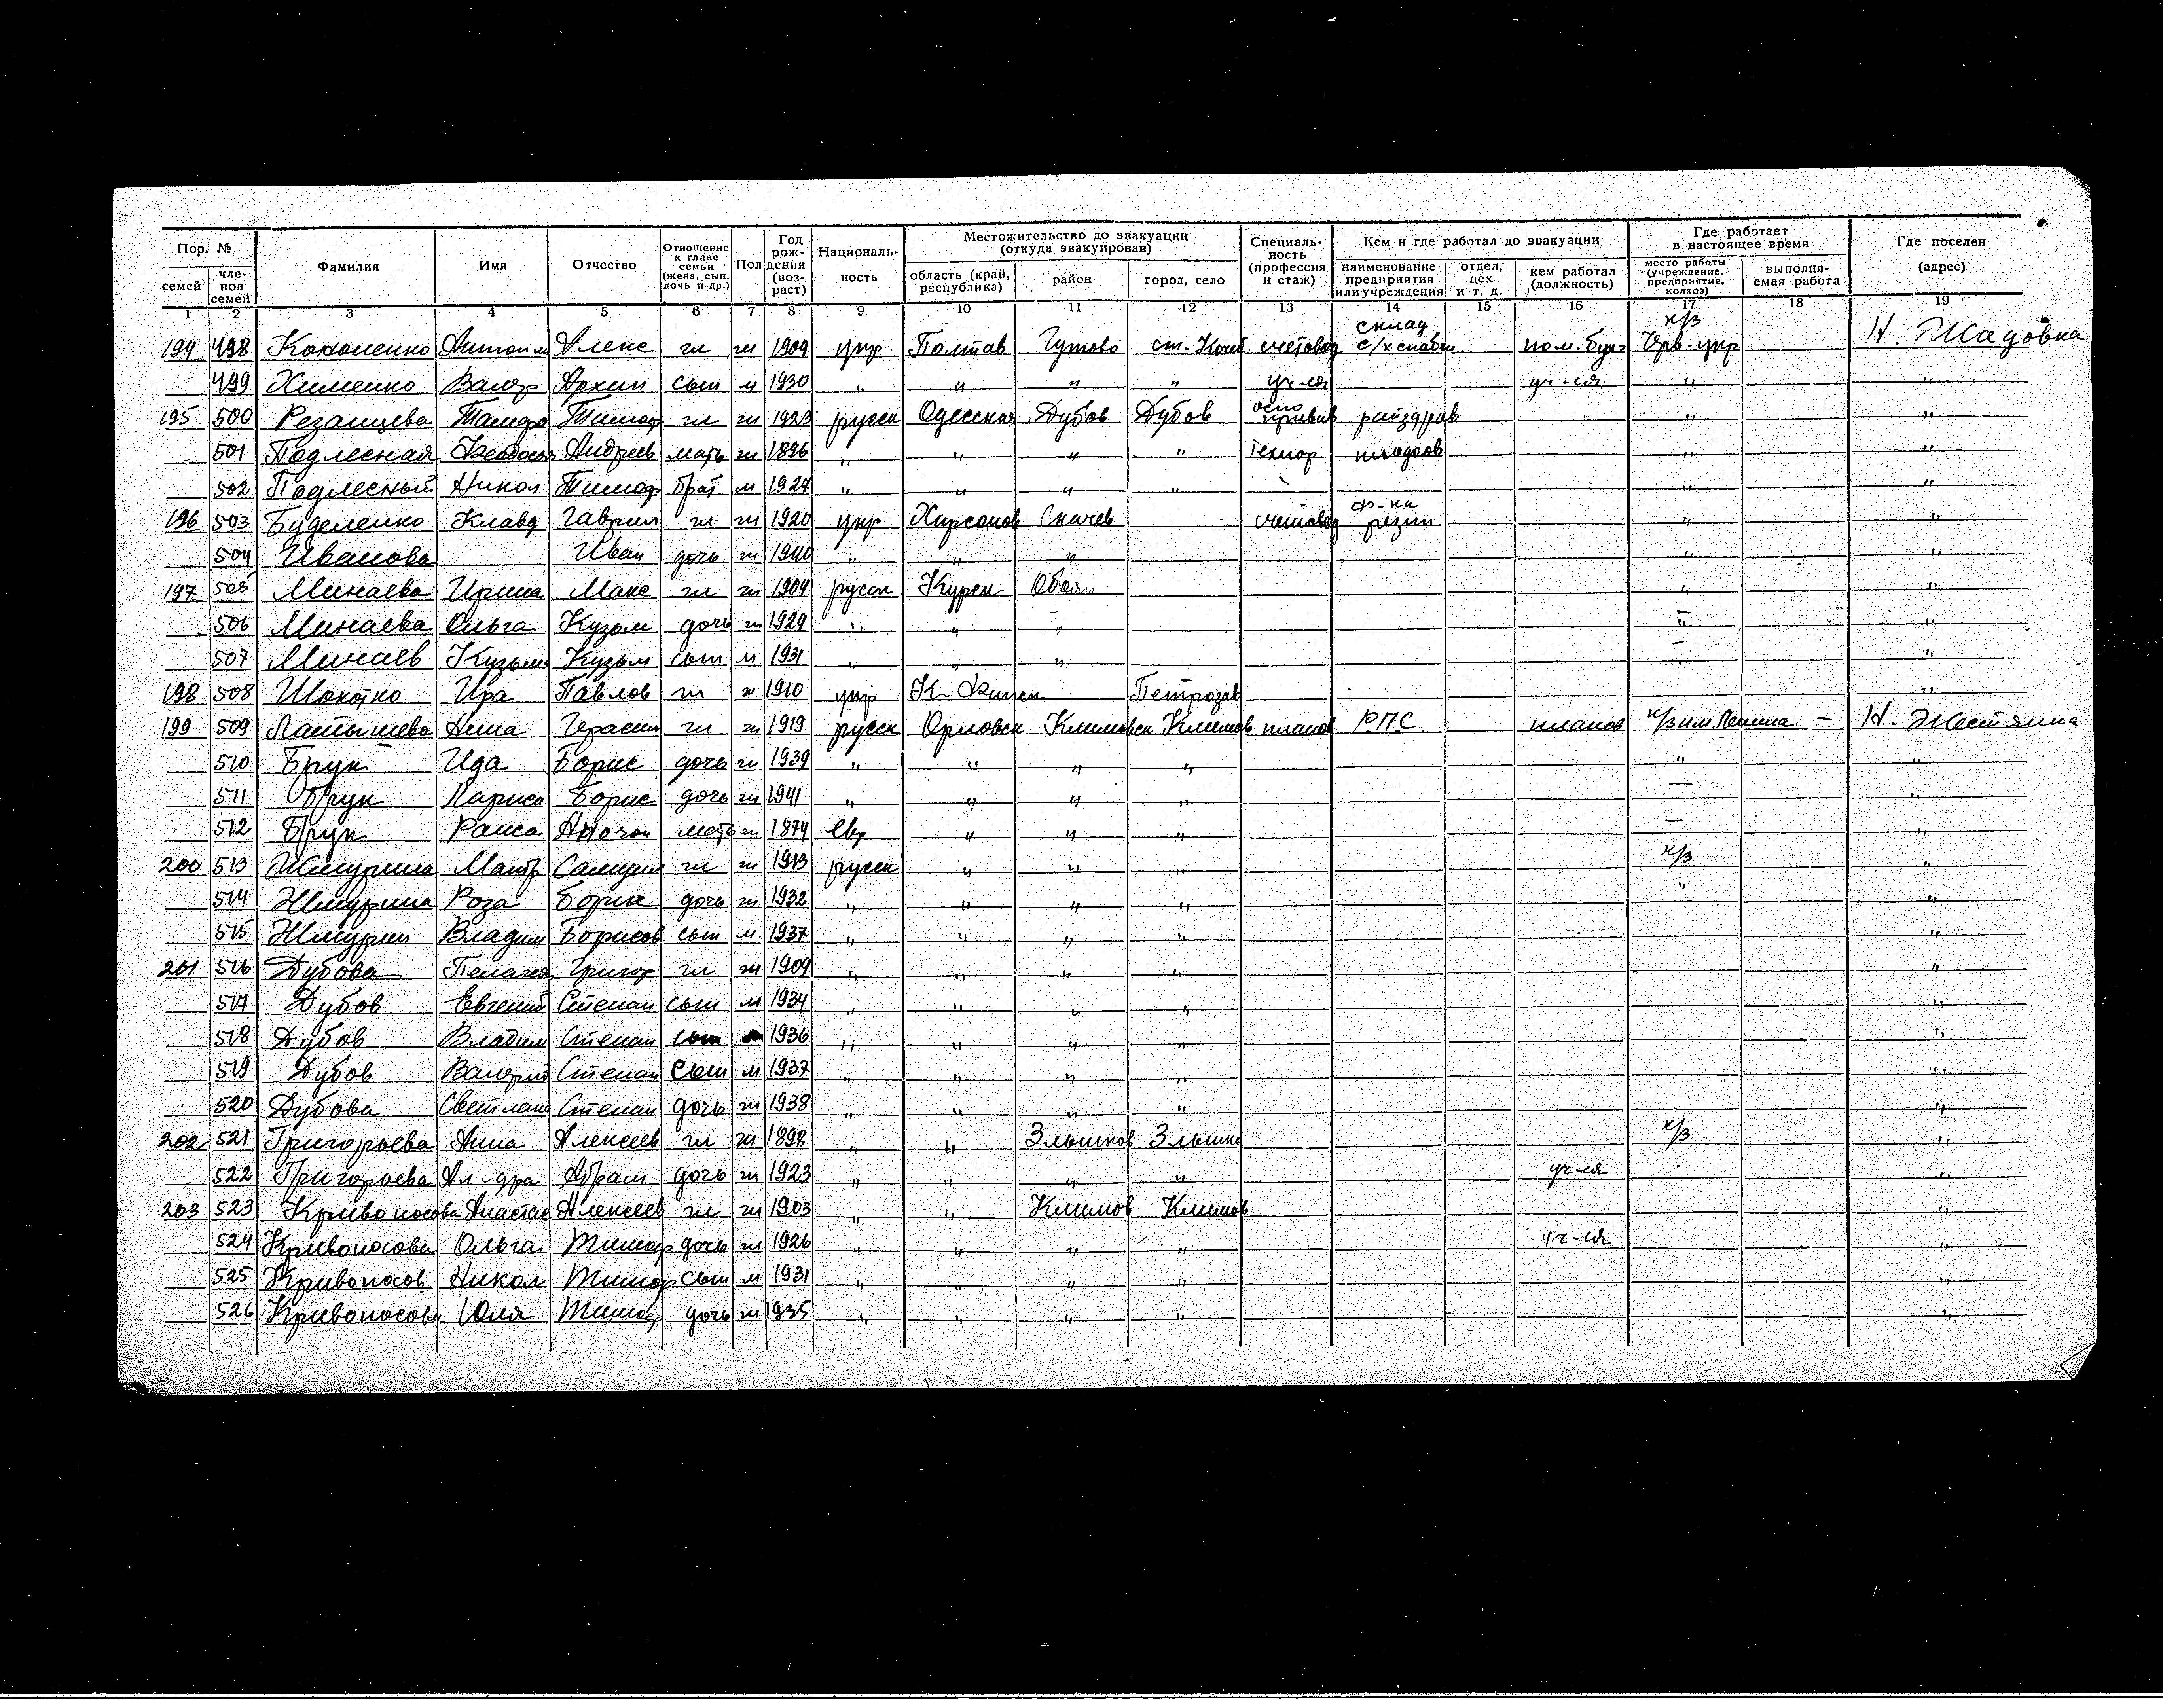 Пор. №
семей
членов семей
Фамилия
Имя
Отчество
Отношение к главе семьи (жена, сын, дочь и др.)
Пол
Год рождения (возраст)
Националь-ность
Местожительство до эвакуации (откуда эвакуирован)
область (край, республика)
район
город, село
Специаль-ность (профессия и стаж)
Кем и где работал до эвакуации
наименование предприятия или учреждения
отдел, цех и т. д.
кем работал (должность)
Где работает в настоящее время
место работы (учреждение, предприятие, колхоз)
выполня-емая работа
Где поселен (адрес)
1 2 3 4 5 6 7 8 9 10 11 12 13 14 15 16 17 18 19
194 498 Кононенко Алекс гл ж 1909 укр Полтав счетовод склад с/х снабж. пом. бухг к/з Черв. укр Н. Жадовка
499 Хименко Валер Архип сын м 1930 " " " " уч-ся уч-ся " "
195 500 Резанцева Тамара Тимоф гл ж 1923 русск Одесская Дубов Дубов оспо прив райздрав " "
501 Подлесная Андреев мать ж 1896 " " " " " "
502 Подлесный Никол Тимоф брат м 1927 " " " " " "
196 503 Буделенко Клавд Гаврил гл ж 1920 укр счетовод ф-ка резин " "
504 Иванова Иван дочь ж 1940 " " " " "
197 505 Минаева Ирина Макс гл ж 1904 русск Курск Обоян " "
506 Минаева Ольга Кузьм дочь ж 1929 " " " " "
507 Минаев Кузьма Кузьм сын м 1931 " " " " "
198 508 Ира Павлов гл ж 1910 укр К-Финск Петрозав "
199 509 Латышева Анна Герасим гл ж 1919 русск Орловск Климовск Климов планов РПС планов к/з им. Ленина — Н. Жестянка
510 Брук Ида Борис дочь ж 1939 " " " " " "
511 Брук Лариса Борис дочь ж 1941 " " " " — "
512 Брук Раиса мать ж 1874 евр " " " — "
200 513 Жмурина Матр гл ж 1913 русск " " " к/з "
514 Жмурина Роза Борис дочь ж 1932 " " " " " "
515 Жмурин Владим Борисов сын м 1937 " " " " "
201 516 Дубова Пелагея Григор гл ж 1909 " " " " "
517 Дубов Евгений Степан сын м 1934 " " " " "
518 Дубов Владим Степан сын м 1936 " " " " "
519 Дубов Валерий Степан сын м 1937 " " " " "
520 Дубова Светлана Степан дочь ж 1938 " " " " "
202 521 Григорьева Анна Алексеев гл ж 1898 " " Злынков Злынка к/з "
522 Григорьева Ал-дра Абрам дочь ж 1923 " " " " уч-ся "
203 523 Кривоносова Анастас Алексеев гл ж 1903 " " Климов Климов "
524 Кривоносова Ольга Тимоф дочь ж 1926 " " " " уч-ся "
525 Кривоносов Никол Тимоф сын м 1931 " " " " "
526 Кривоносова Юля Тимоф дочь ж 1935 " " " " "